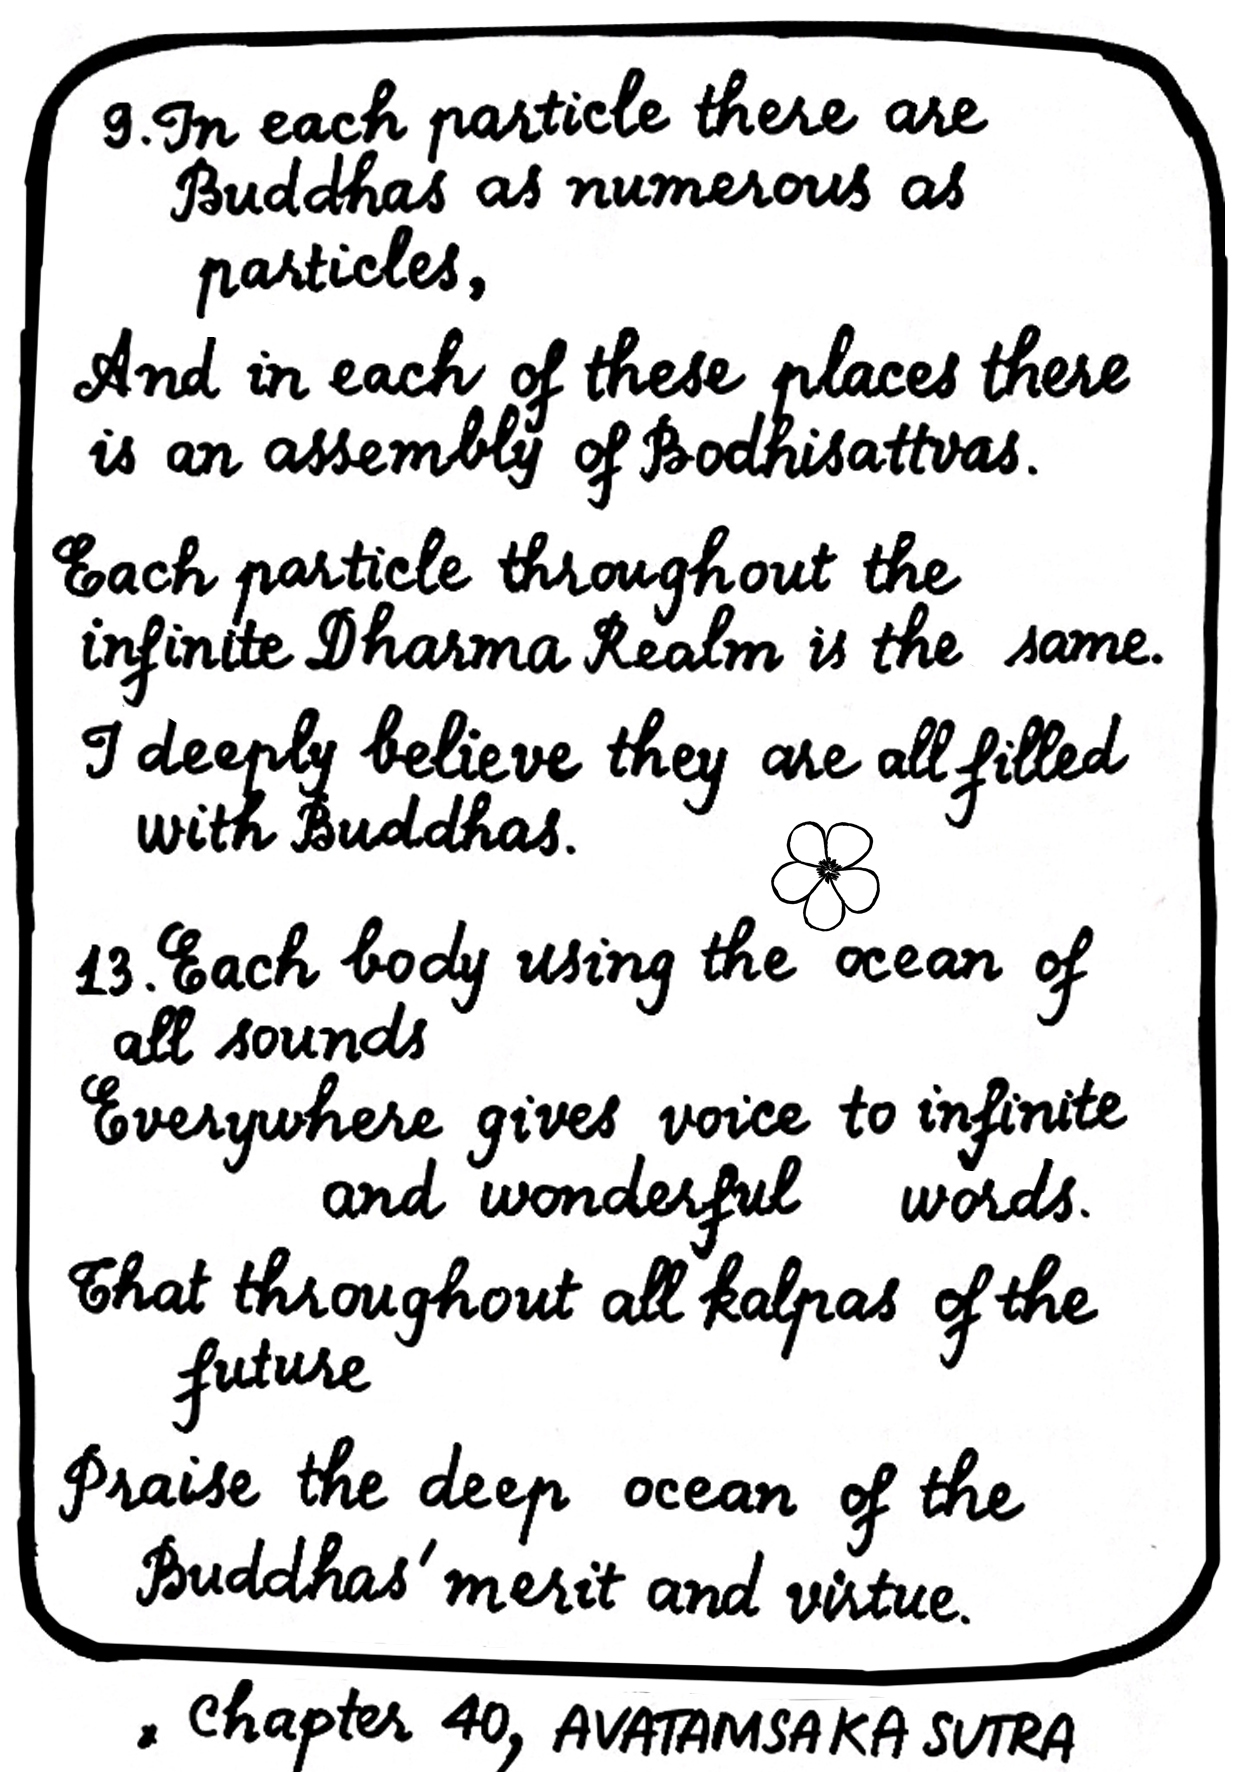 9. In each particle there are
Buddhas as numerous as
particles,
And in each of these places there
is an assembly of Bodhisattvas.
Each particle throughout the
infinite Dharma Realm is the same.
I deeply believe they are all filled
with Buddhas.
13. Each body using the ocean of
all sounds
Everywhere gives voice to infinite
and wonderful words.
That throughout all kalpas of the
future
Praise the deep ocean of the
Buddhas' merit and virtue.
* Chapter 40, AVATAMSAKA SUTRA